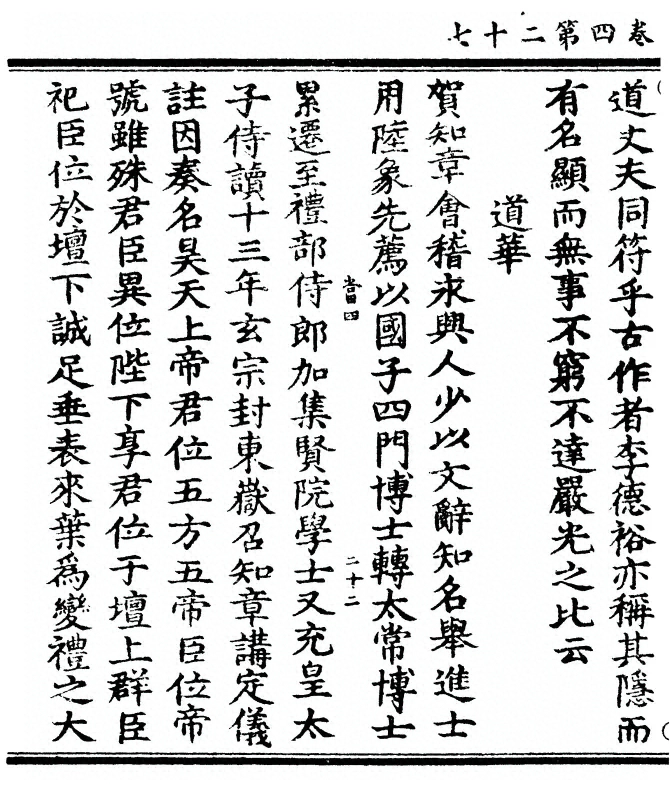 卷四第二十七
道丈夫同符乎古作者李德裕亦稱其隱而
有名顯而無事不窮不達嚴光之比云
道華
賀知章會稽永興人少以文辭知名舉進士
用陸象先薦以國子四門博士轉太常博士
當四
二十二
累遷至禮部侍郎加集賢院學士又充皇太
子侍讀十三年玄宗封東嶽召知章講定儀
註因奏名昊天上帝君位五方五帝臣位帝
號雖殊君臣異位陛下享君位于壇上群臣
祀臣位於壇下誠足垂表來葉為變禮之大